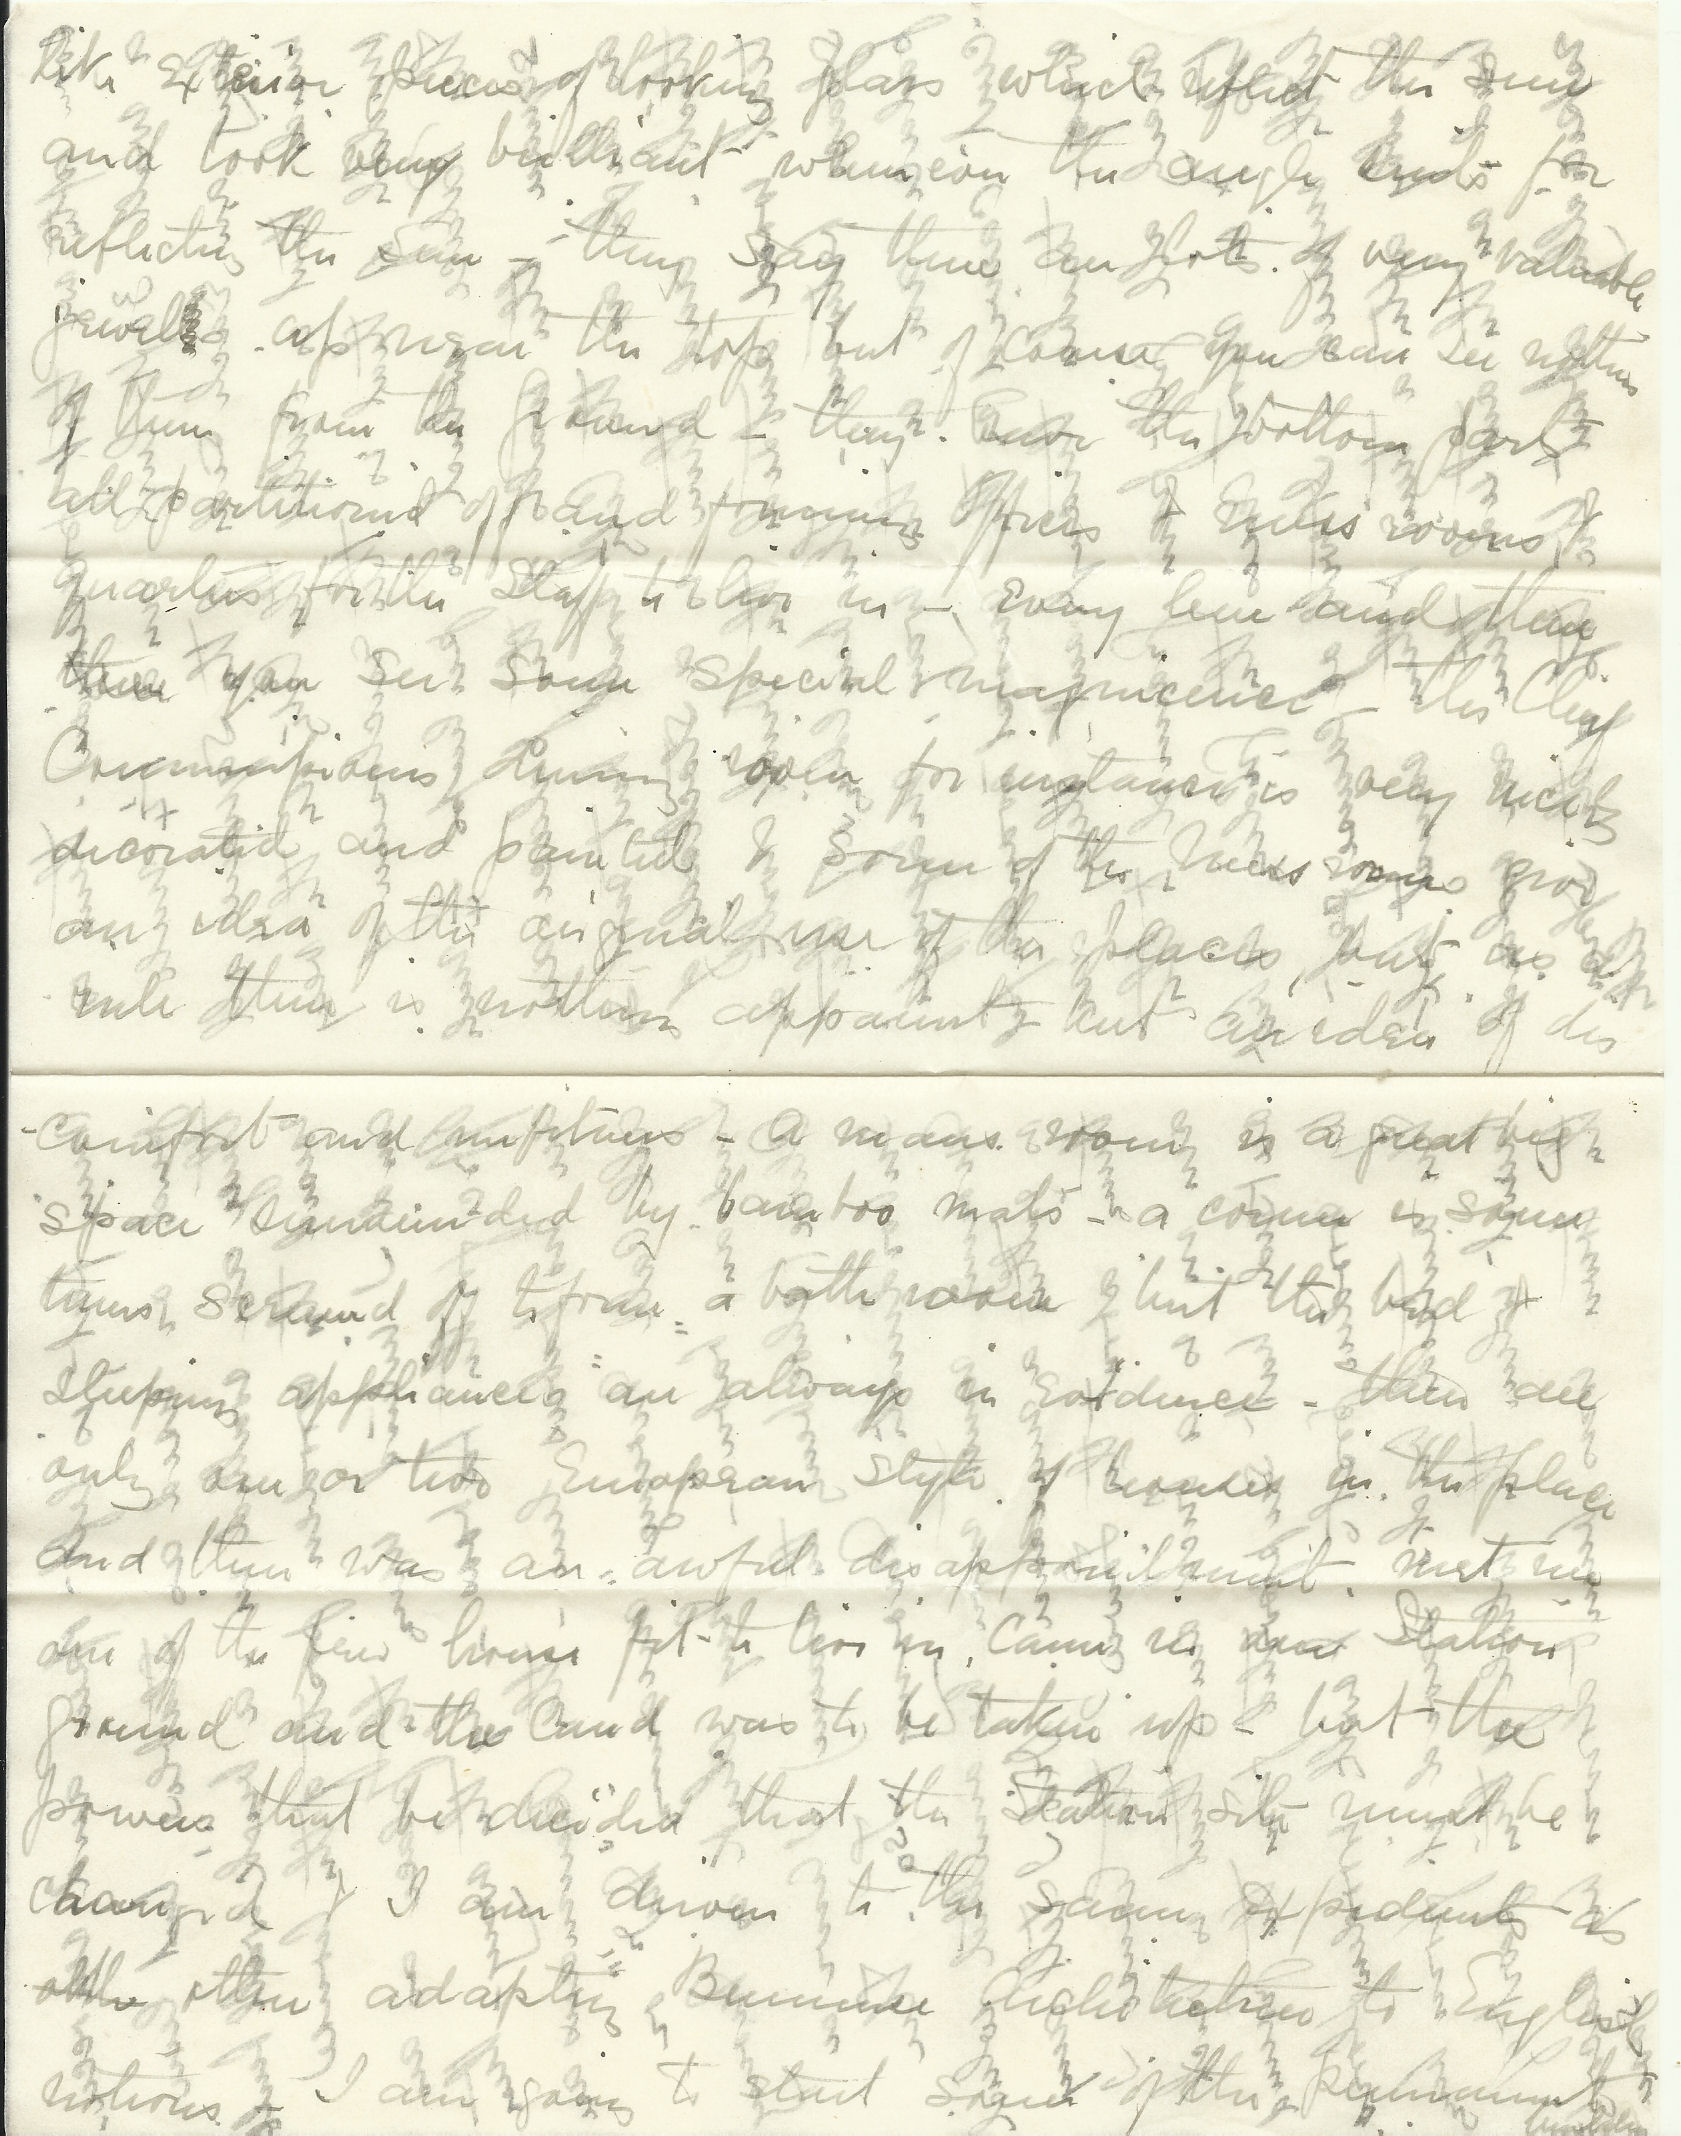 exterior pieces of looking glass which reflect the sun
and look very brilliant whenever the angle tends for
reflecting the sun - they say there are lots of very valuable
jewels up near the top but of course you can see nothing
of them from the ground - they have the bottom part
all partitioned off and forming offices & mess rooms &
quarters for the staff to live in - every here and there
you see some special magnificence - the Chief
Commissioners dining room for instance is very nicely
decorated and painted & some of the mess rooms give
any idea of the original use of the places, but as a
rule there is nothing apparent but an idea of dis
-comfort and unfitness - a mans room is a great big
space surrounded by bamboo mats - a corner is some
times screened off to form a bath room but the bed &
sleeping appliances are always in evidence - there are
only one or two European style of houses in the place
and there was an awful disappointment. met me
one of the few house fit to live in, came in our Station
ground and the land was to be taken up - but the
powers that be decided that the Station site must be
changed & I am driven to the same expedients as
other adapting Burmese architecture to English
notions - I am going to start some of the permanent